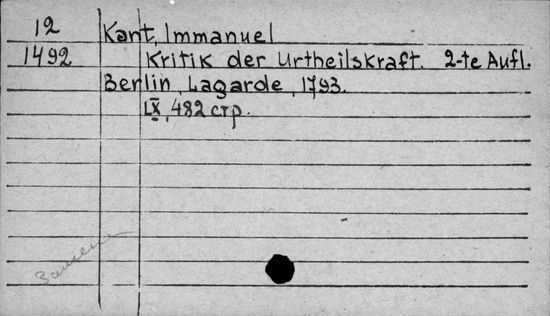 12 Kant, Immanuel
1492 Kritik der Urtheilskraft. 2-te Aufl.
Berlin, Lagarde, 1793.
LX, 482 стр.